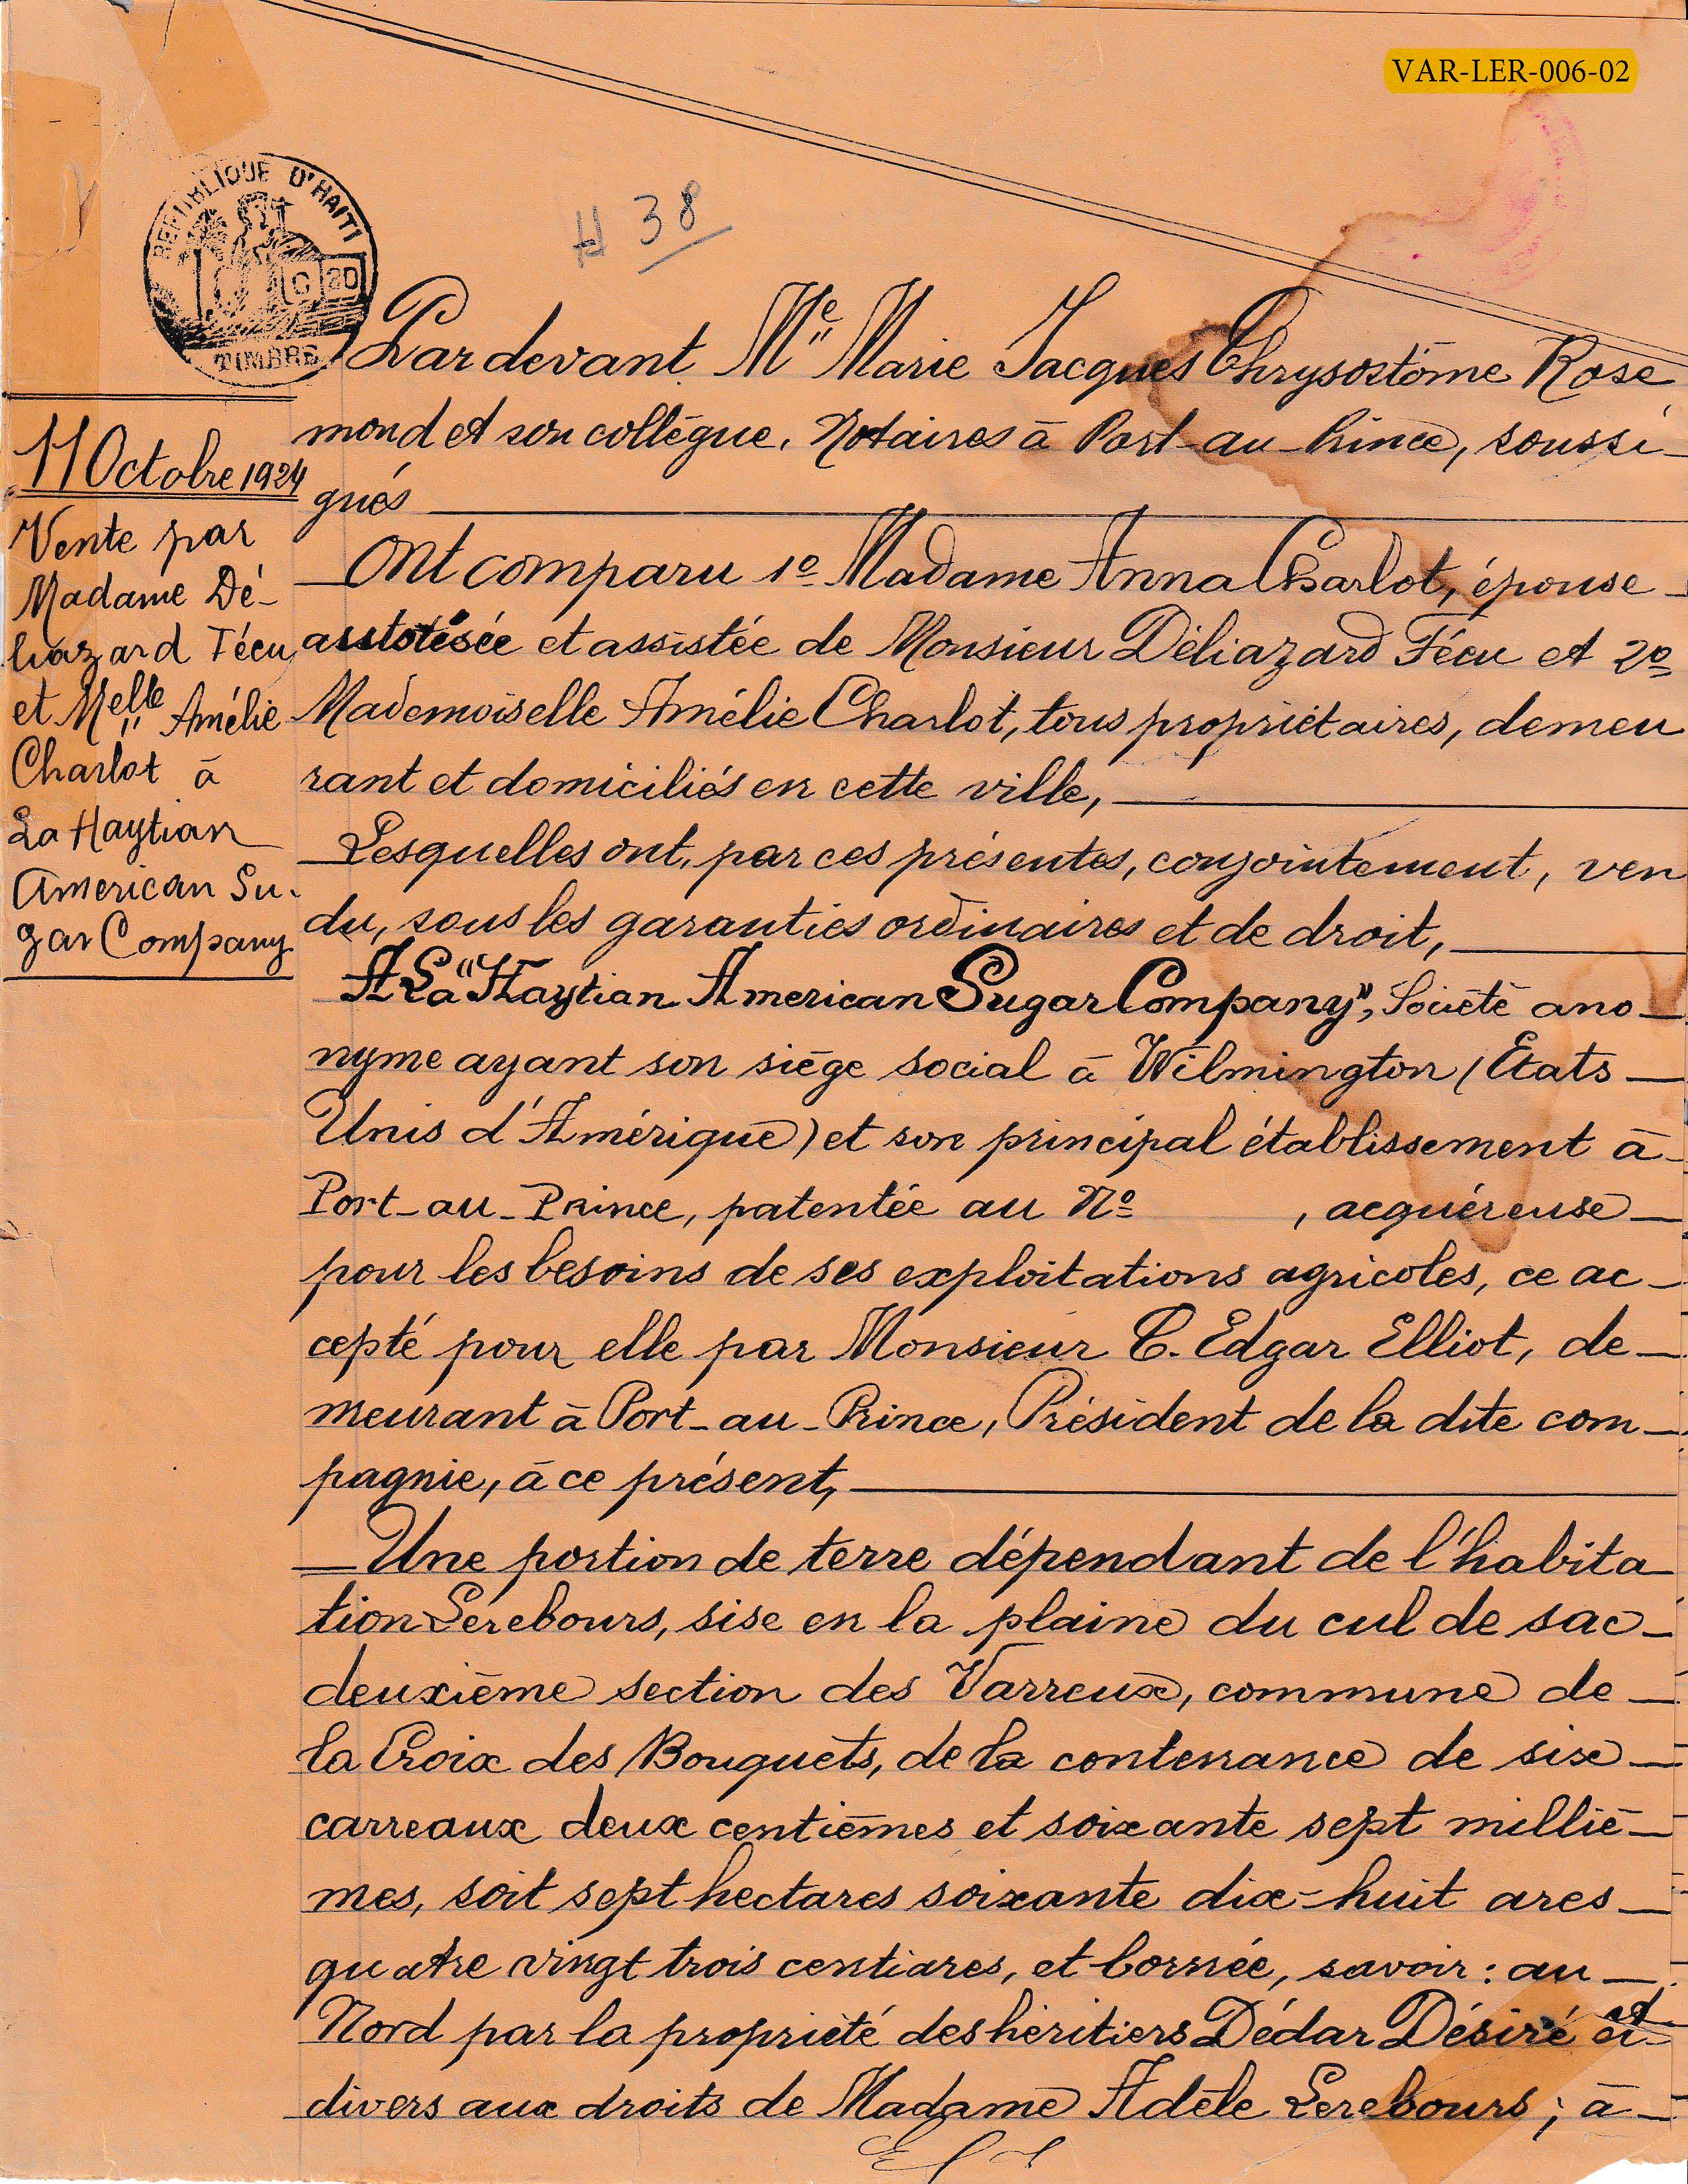 VAR-LER-006-02
REPUBLIQUE D'HAITI
C 20
TIMBRE
# 38
11 Octobre 1924
Vente par
Madame Dé-
liazard Fécu
et Melle Amélie
Charlot à
La Haytian
American Su-
gar Company
Par devant Me Marie Jacques Chrysostôme Rose
mond et son collègue, Notaires à Port-au-Prince, soussi-
gnés
Ont comparu 1o Madame Anna Charlot, épouse
autorisée et assistée de Monsieur Déliazard Fécu et 2o
Mademoiselle Amélie Charlot, tous propriétaires, demeu
rant et domiciliés en cette ville,
Lesquelles ont, par ces présentes, conjointement, ven
du, sous les garanties ordinaires et de droit,
A La "Haytian American Sugar Company", Société ano-
nyme ayant son siège social à Wilmington (Etats
Unis d'Amérique) et son principal établissement à
Port-au-Prince, patentée au No , acquéreuse
pour les besoins de ses exploitations agricoles, ce ac-
cepté pour elle par Monsieur C. Edgar Elliot, de-
meurant à Port-au-Prince, Président de la dite com-
pagnie, à ce présent,
Une portion de terre dépendant de l'habita-
tion Lerebours, sise en la plaine du cul de sac-
deuxième section des Varreux, commune de
la Croix des Bouquets, de la contenance de six
carreaux deux centièmes et soixante sept milliè-
mes, soit sept hectares soixante dix-huit ares
quatre vingt trois centiares, et bornée, savoir : au
Nord par la propriété des héritiers Dédar Désiré et
divers aux droits de Madame Adèle Lerebours ; à